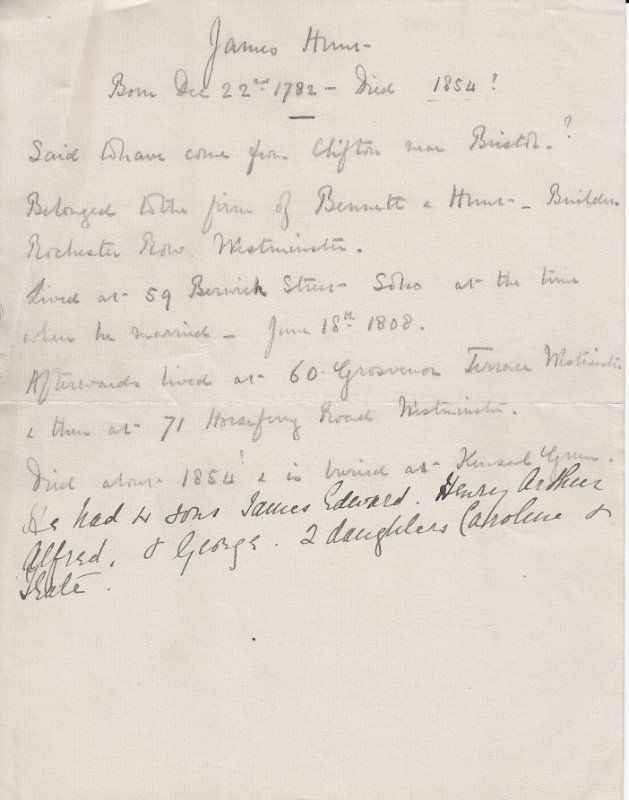 James Hunt
Born Dec 22nd 1782 - Died 1854?
Said to have come from Clifton near Bristol. ?
Belonged to the firm of Bennett & Hunt - Builders
Rochester Row. Westminster.
Lived at 59 Berwick Street Soho at the time
when he married - June 18th 1808.
Afterwards lived at 60 Grosvenor Terrace Westminster
& then at 71 Horseferry Road Westminster.
Died about 1854? & is buried at Kensal Green.
He had 4 sons James Edward. Henry Arthur
Alfred. & George. 2 daughters Caroline &
Kate.